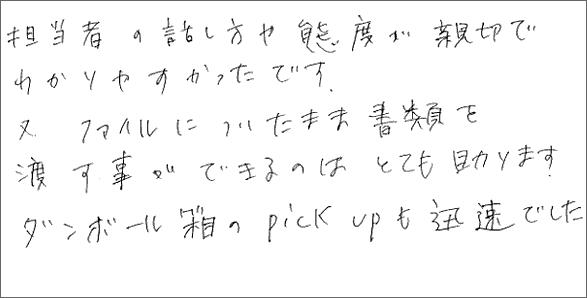 担当者の話し方や態度が親切で
わかりやすかったです.
又 ファイルについたまま書類を
渡す事ができるのは とても助かります
ダンボール箱の pick upも迅速でした